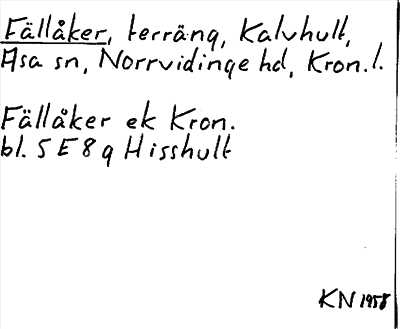 Fällåker, terräng, Kalvhult,
Asa sn, Norrvidinge hd, Kron.l.
Fällåker ek Kron.
bl. 5 E 8 g Hisshult
KN 1958